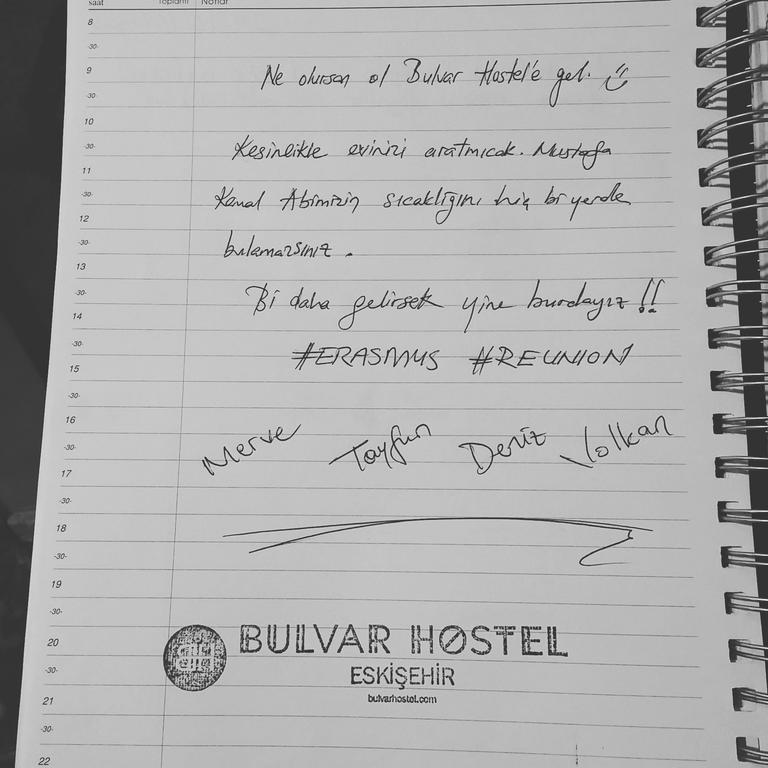 saat Toplantı Notlar
8
-30-
9
Ne olursan ol Bulvar Hostel'e gel.
-30-
10
-30-
Kesinlikle evinizi aratmıcak. Mustafa
11
-30-
Kemal Abimizin sıcaklığını hiç bi yerde
12
-30-
bulamazsınız.
13
-30-
Bi daha gelirsek yine burdayız!!
14
-30-
#ERASMUS #REUNION
15
-30-
16
Merve Tayfun Deniz Volkan
-30-
17
-30-
18
-30-
19
-30-
20
BULVAR HOSTEL
-30-
ESKİŞEHİR
bulvarhostel.com
21
-30-
22